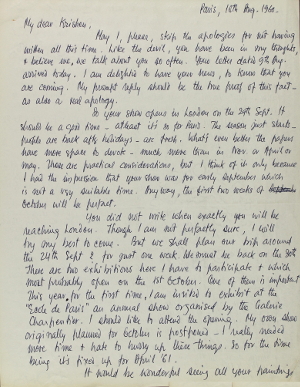 Paris, 16th Aug. 1960.
My dear Krishen,
May I, please, skip the apologies for not having
written all this time. Like the devil, you have been in my thoughts,
& believe me, we talk about you so often. Your letter dated 9th Aug.
arrived today. I am delighted to have your news, to know that you
are coming. My prompt reply should be the true proof of this fact –
as also a real apology.
So your show opens in London on the 29th Sept. It
should be a good time – atleast it is so for Paris. The season just starts –
people are back after holidays – are fresh. What's even better the papers
have more space to devote – much more than in Nov. or April or
may. These are practical considerations, but I think of it only because
I had the impression that your show was for early September which
is not a very suitable time. Anyway, the first two weeks of
October will be perfect.
You did not write when exactly you will be
reaching London. Though I am not perfectly sure, I will
try my best to come. But we shall plan our trip around
the 24th Sept & for just one week. We must be back on the 30th
There are two exhibitions here I have to participate & which
most probably open on the 1st October. One of them is important
This year, for the first time, I am invited to exhibit at the
"Ecole de Paris" an annual show organised by the Galerie
Charpentier. I should like to attend the opening. My own show
originally planned for October is postponed – I really needed
more time & hate to hurry up these things. So for the time
being it's fixed up for April '61.
It would be wonderful seeing all your paintings